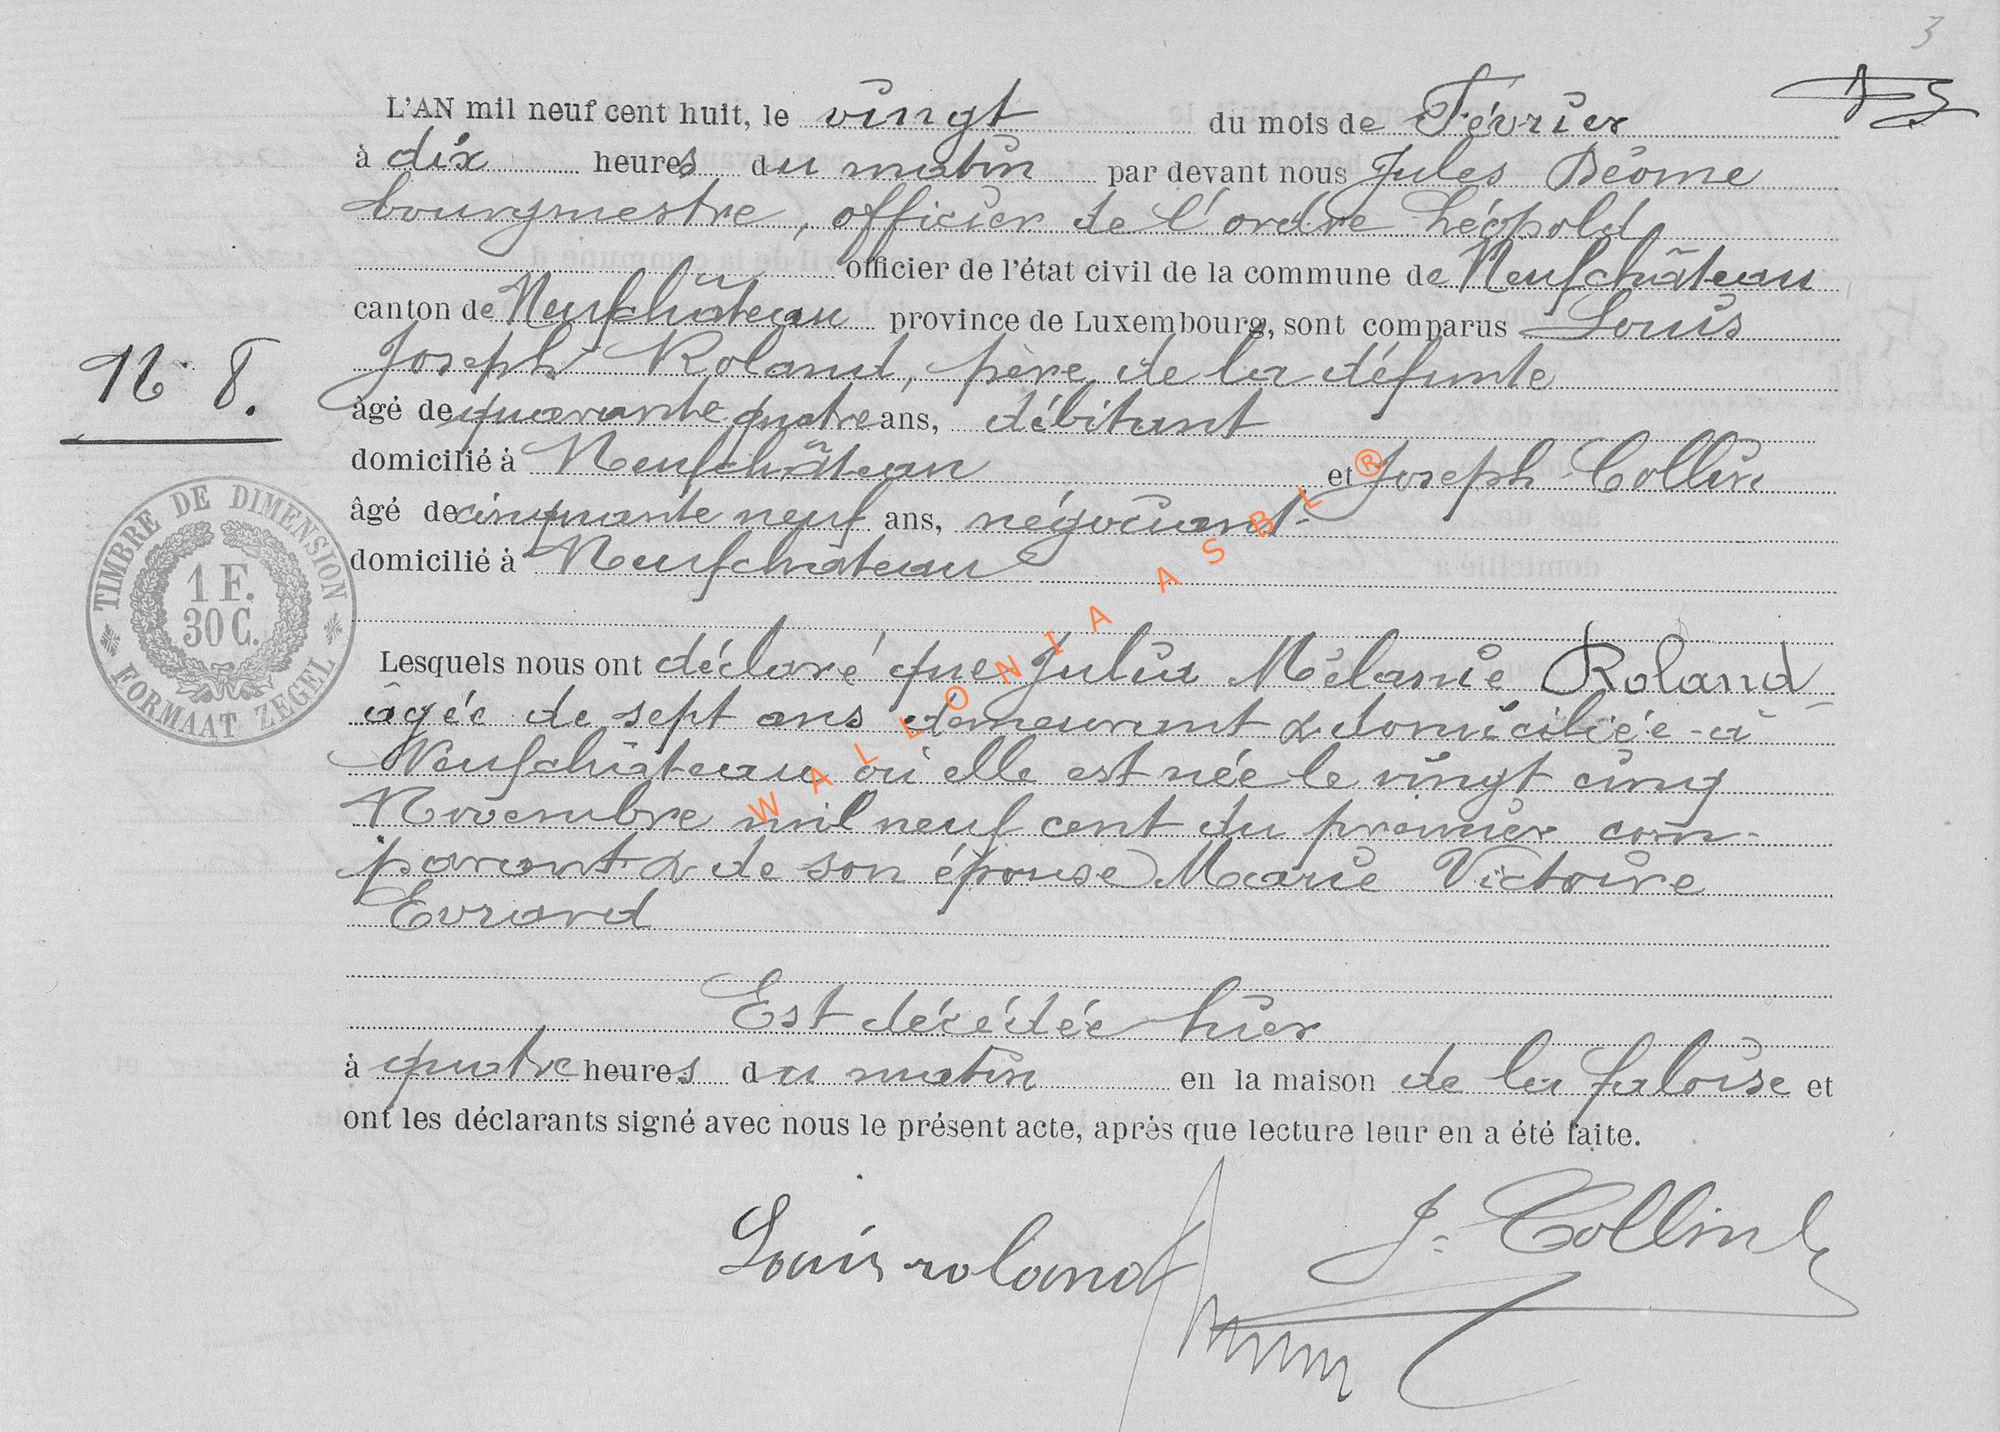 3
L'AN mil neuf cent huit, le vingt du mois de Février
à dix heures du matin par devant nous Jules
bourgmestre, officier de l'ordre Léopold
officier de l'état civil de la commune de Neufchâteau
canton de Neufchâteau province de Luxembourg, sont comparus Louis
Joseph Roland, père de la défunte
N° 8.
âgé de quarante quatre ans, débitant
domicilié à Neufchâteau et Joseph Collin
âgé de cinquante neuf ans, négociant
domicilié à Neufchâteau
TIMBRE DE DIMENSION
1 F.
30 C.
FORMAAT ZEGEL
Lesquels nous ont déclaré que Julia Mélanie Roland
âgée de sept ans demeurant & domiciliée à
Neufchâteau où elle est née le vingt cinq
Novembre mil neuf cent du premier com-
parant & de son épouse Marie Victoire
Evrard
Est décédée hier
à quatre heures du matin en la maison de la et
ont les déclarants signé avec nous le présent acte, après que lecture leur en a été faite.
Louis roland J. Collin
WALLONIA ASBL ®